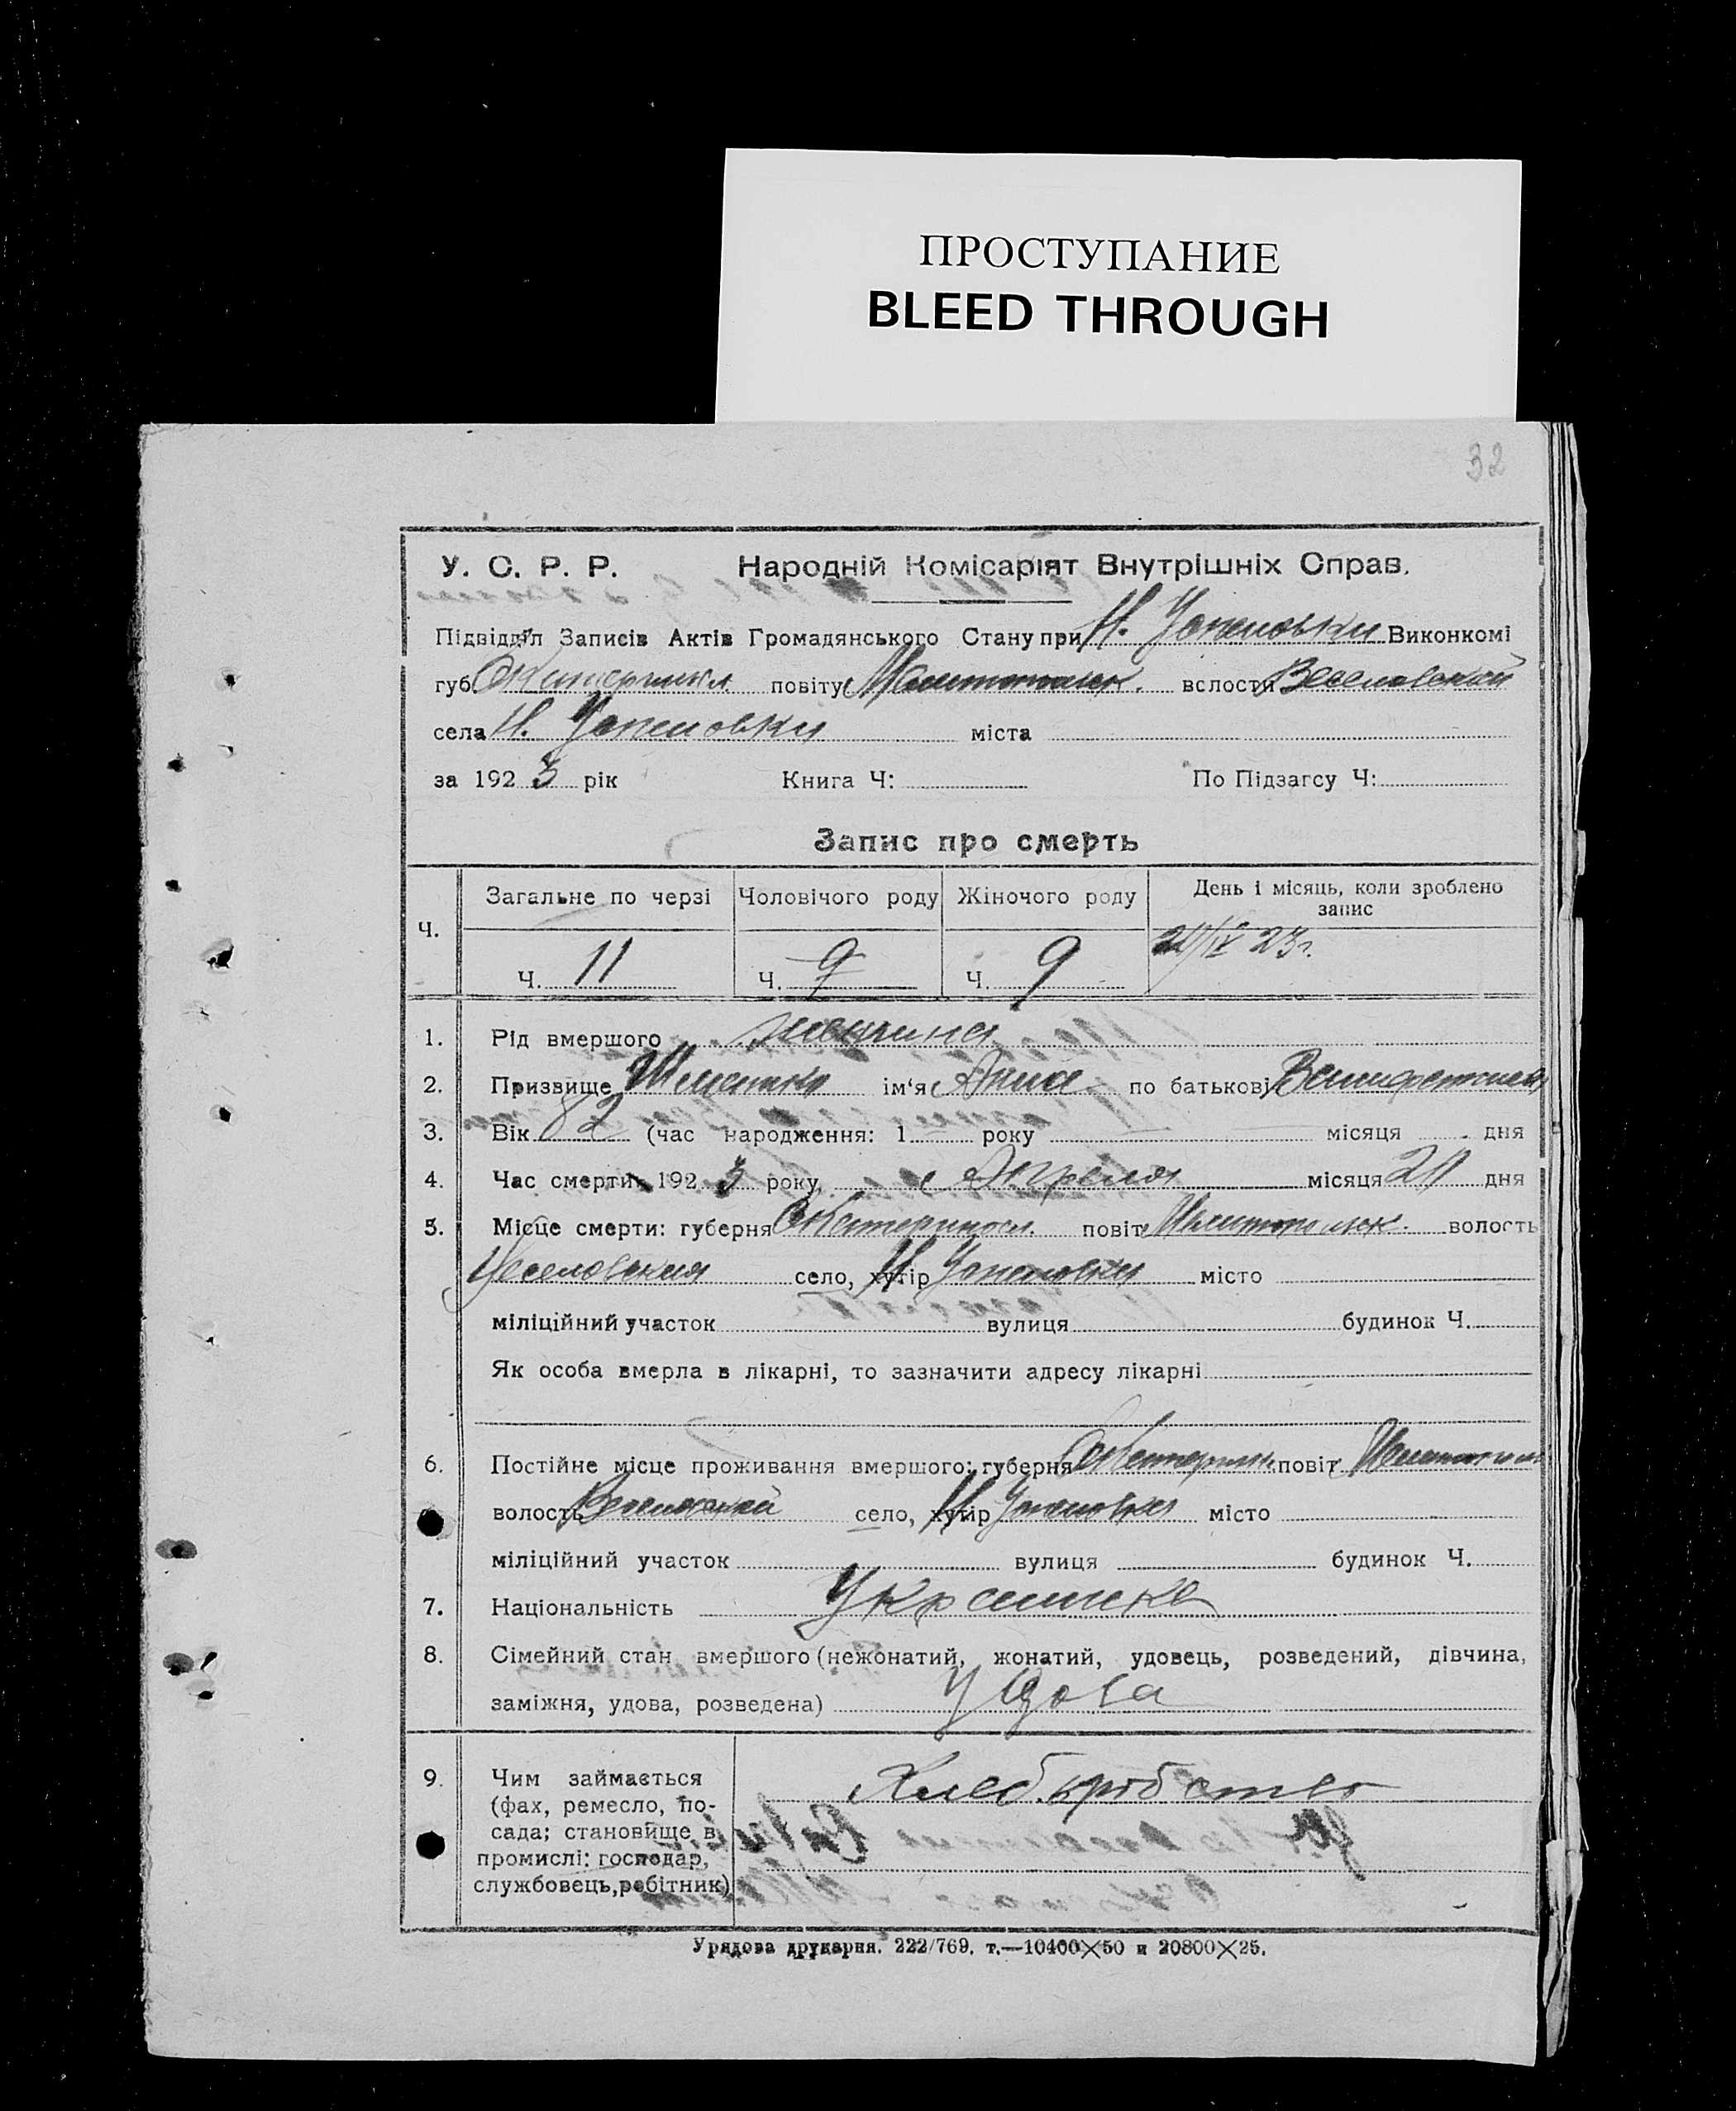 ПРОСТУПАНИЕ
BLEED THROUGH
32
У. С. Р. Р. Народній Комісаріят Внутрішніх Справ.
Підвідділ Записів Актів Громадянського Стану при Н. Успеновки Виконкомі
губ. Екатеринсл. повіту Мелитопольск. волости Веселовской
села Н. Успеновки міста
за 1923 рік Книга Ч: По Підзагсу Ч:
Запис про смерть
Ч. Загальне по черзі Чоловічого роду Жіночого роду День і місяць, коли зроблено запис
Ч. 11 Ч. 9 Ч. 9 /IV 23г.
1. Рід вмершого женщина
2. Призвище ім'я Анна по батькові
3. Вік 82 (час народження: 1 року місяця дня
4. Час смерти 1923 року, Апреля місяця дня
5. Місце смерти: губерня Екатериносл. повіт Мелитопольск. волость
Веселовская село, хутір Н Успеновка місто
міліційний участок вулиця будинок Ч.
Як особа вмерла в лікарні, то зазначити адресу лікарні
6. Постійне місце проживання вмершого: губерня Екатерин. повіт Мелитопол
волость Веселовской село, хутір Н Успеновка місто
міліційний участок вулиця будинок Ч.
7. Національність Украинка
8. Сімейний стан вмершого (нежонатий, жонатий, удовець, розведений, дівчина,
заміжня, удова, розведена) Удова
9. Чим займається Хлеборобство
(фах, ремесло, по-
сада; становище в
промислі: господар,
службовець, робітник)
Урядова друкарня. 222/769. т.—10400×50 и 20800×25.